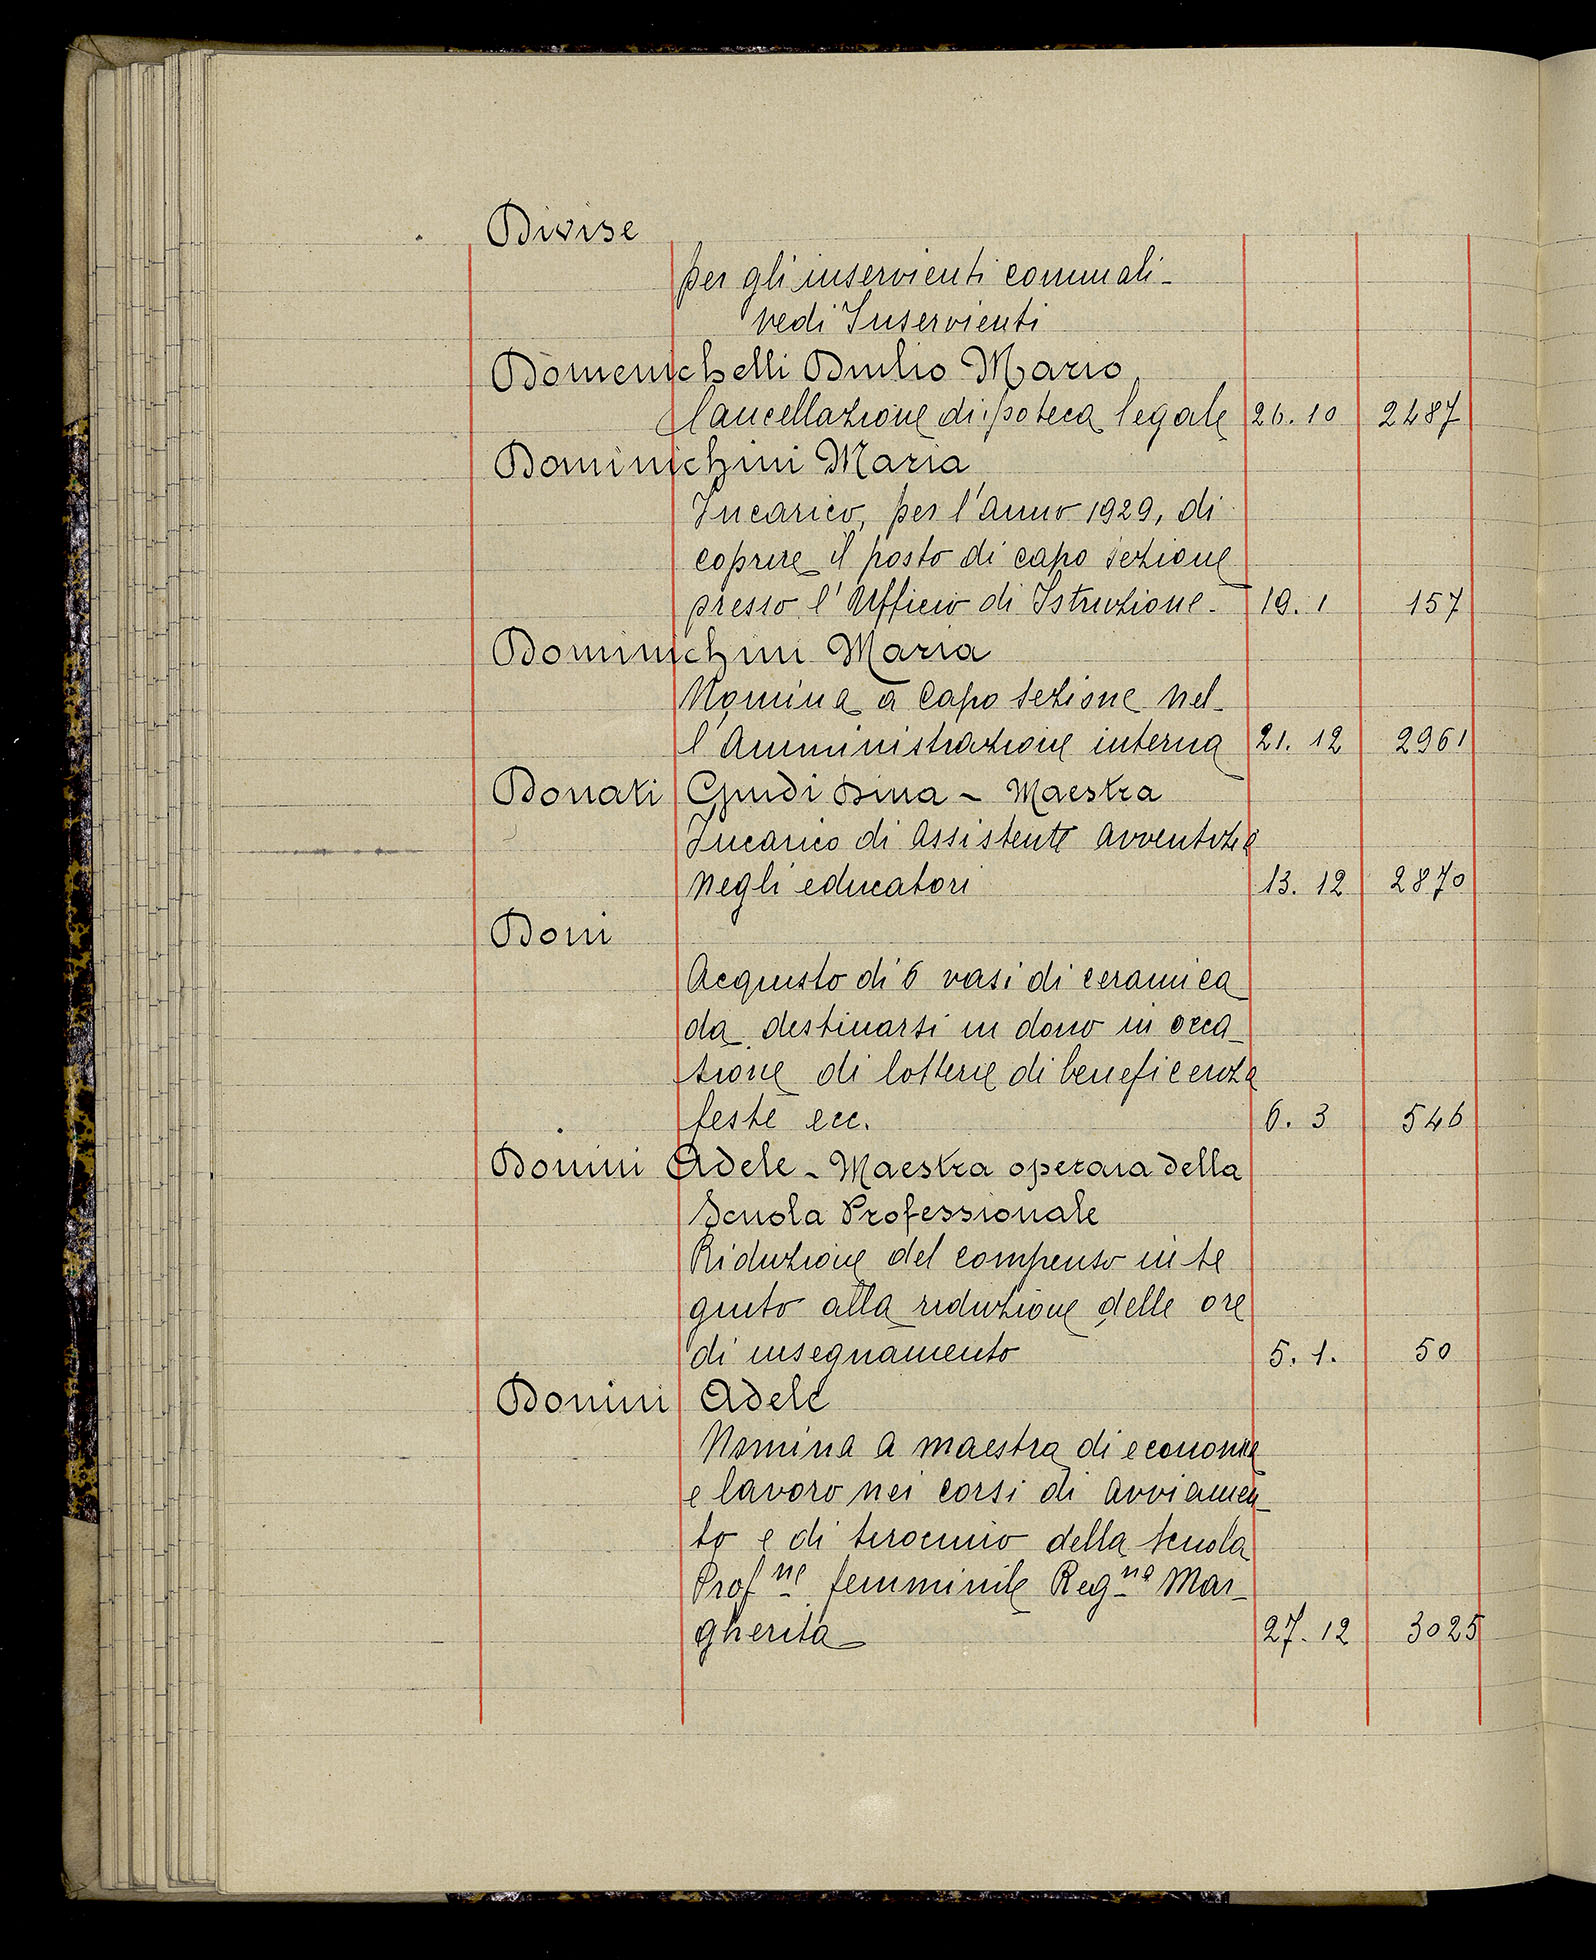 Divise
per gli inservienti comunali -
vedi Inservienti
Domenichelli Duilio Mario
Cancellazione di ipoteca legale 26.10 2487
Dominichini Maria
Incarico, per l'anno 1929, di
coprire il posto di capo sezione
presso l'Ufficio di Istruzione. 19.1 157
Dominichini Maria
Nomina a Capo sezione nel-
l'Amministrazione interna 21.12 2961
Donati Guidi Dina - Maestra
Incarico di assistente avventizia
negli educatori 13.12 2870
Doni
Acquisto di 6 vasi di ceramica
da destinarsi in dono in occa-
sione di lotterie di beneficenza
feste ecc. 6.3 546
Donini Adele - Maestra operaia della
Scuola Professionale
Riduzione del compenso in se
guito alla riduzione delle ore
di insegnamento 5.1. 50
Donini Adele
Nomina a maestra di economia
e lavoro nei corsi di avviamen-
to e di tirocinio della scuola
Prof.ne femminile Reg.na Mar-
gherita 27.12 3025